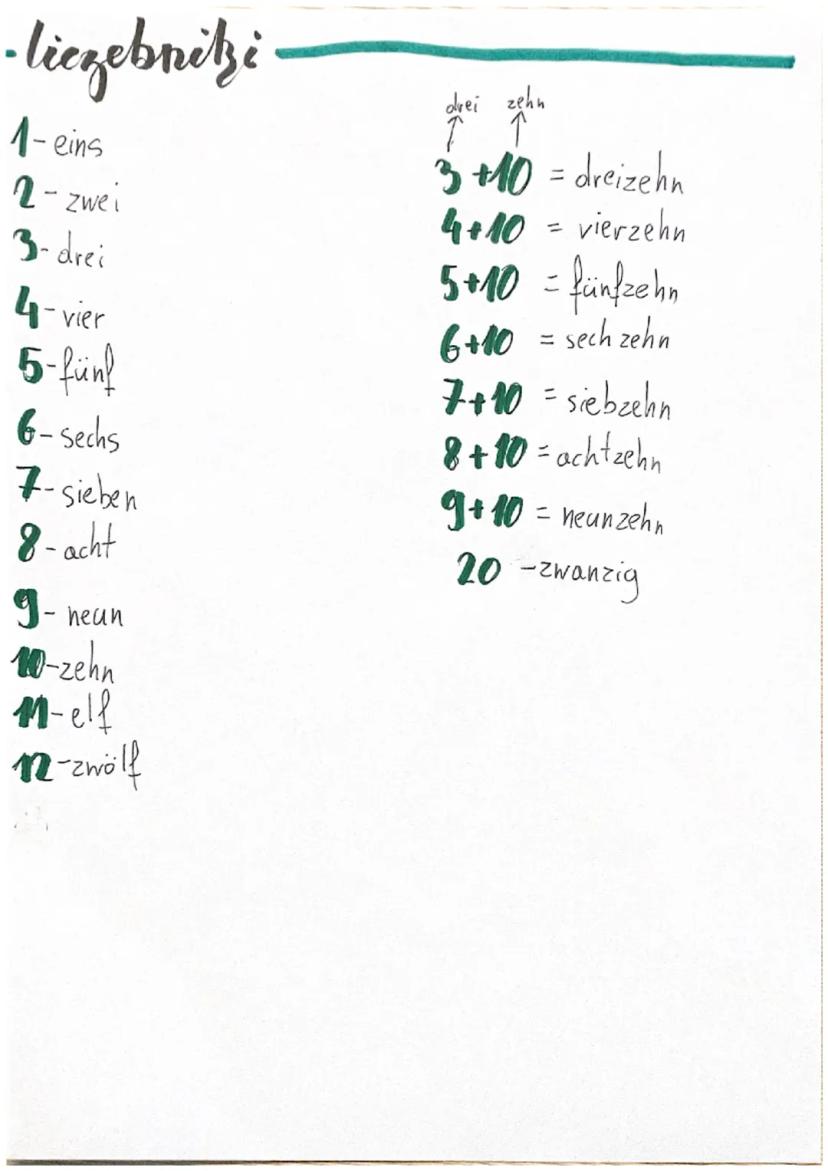 - liczebniki
1 - eins
2 - zwei
3 - drei
4 - vier
5 - fünf
6 - sechs
7 - sieben
8 - acht
9 - neun
10 - zehn
11 - elf
12 - zwölf
drei zehn
3 + 10 = dreizehn
4 + 10 = vierzehn
5 + 10 = fünfzehn
6 + 10 = sechzehn
7 + 10 = siebzehn
8 + 10 = achtzehn
9 + 10 = neunzehn
20 - zwanzig